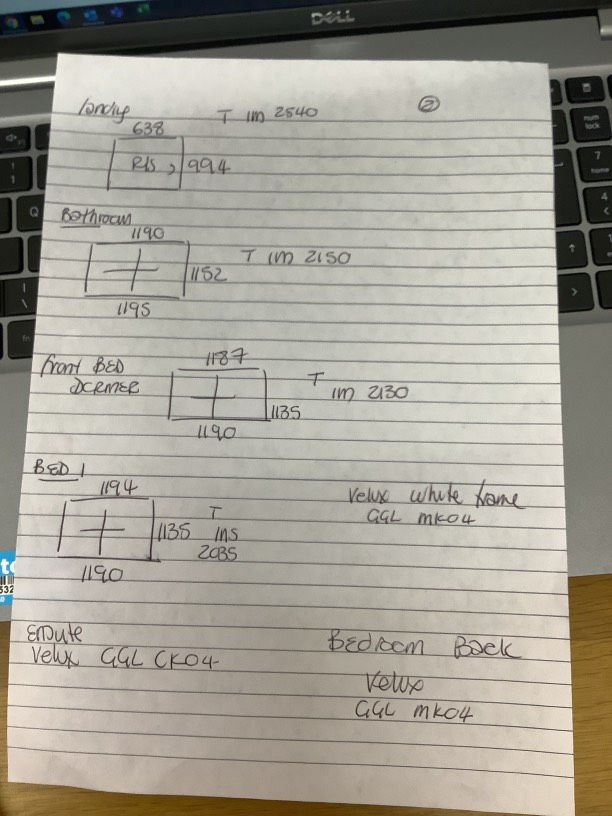 DELL
Landing T IM 2540 ②
638
R/S, 994
Bathroom
1190
T IM 2150
1152
1195
Front BED
DORMER
1187
T
IM 2130
1135
1190
BED 1
1194
T
1135 INS
2035
1190
Velux white frame
GGL MK04
Ensuite
Velux GGL CK04
Bedroom Back
Velux
GGL MK04